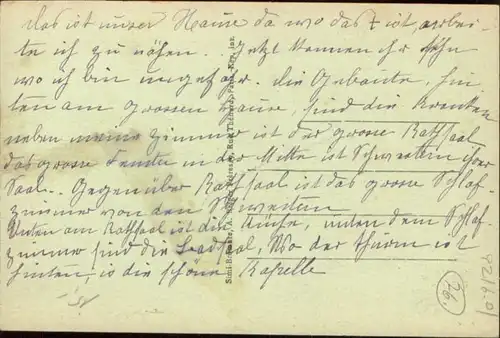 das ist unser Hause da wo das + ist, arbei-
te ich zu nähen.. Jetzt können ihr sehn
wo ich bin ungefähr. die Gebäute, hin-
ten am grossen Hause, sind die Kranken
neben meine Zimmer ist der grosse Rathsaal
das grosse Fenster in der Mitte ist Schwestern ihr
Saal.. Gegenüber Rathsaal ist das grosse Schlaf-
zimmer von den Schwestern
Unten am Rathsaal ist die Küche, unten dem Schlaf-
zimmer sind die saal, Wo der Thurm ist
hinten, is die schöne Kapelle
26.